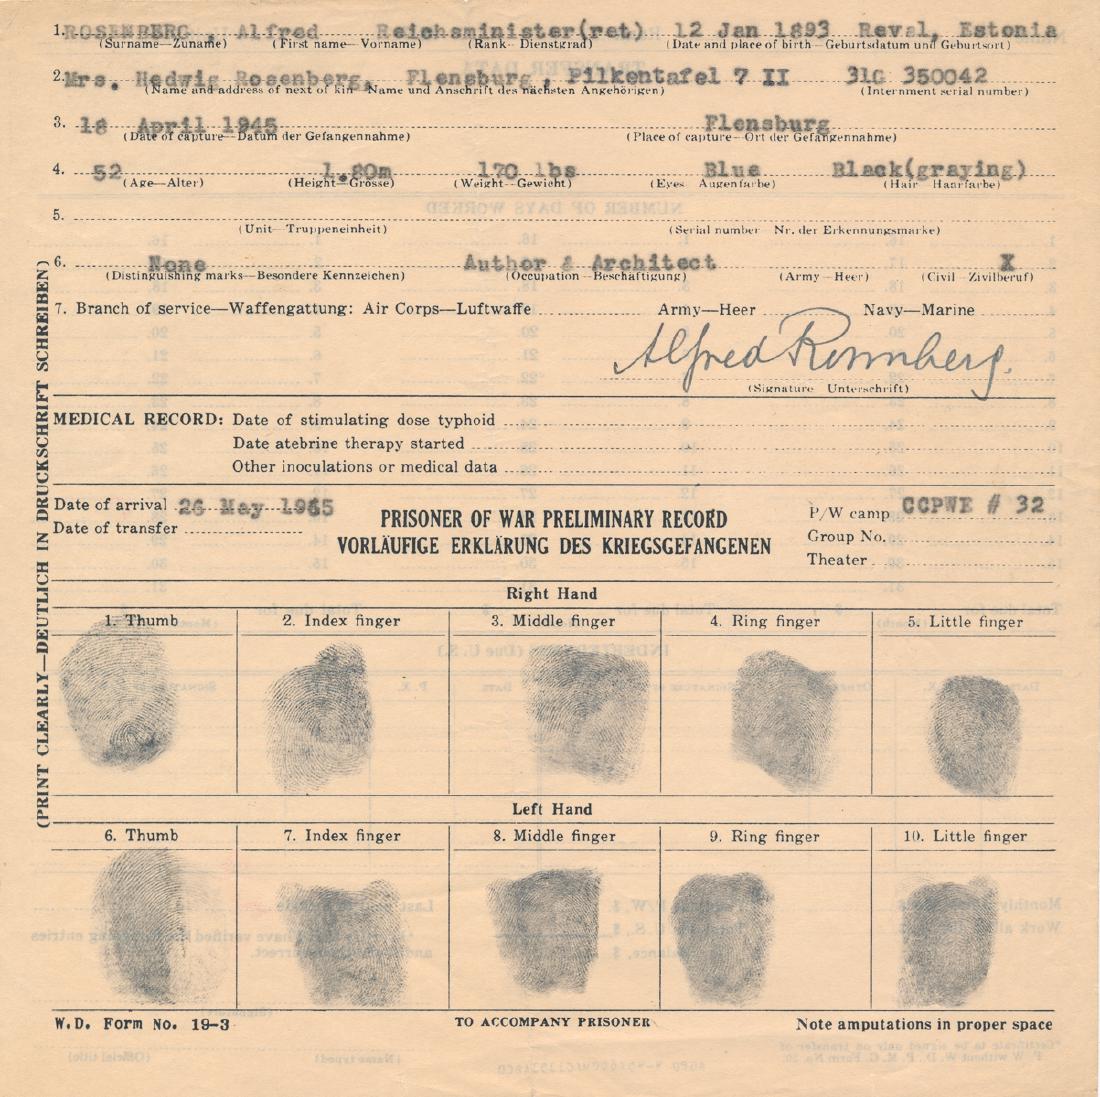 1. ROSENBERG , Alfred Reichsminister(ret) 12 Jan 1893 Reval, Estonia
(Surname—Zuname) (First name—Vorname) (Rank—Dienstgrad) (Date and place of birth—Geburtsdatum und Geburtsort)
2. Mrs. Hedwig Rosenberg, Flensburg, Pilkentafel 7 II 31G 350042
(Name and address of next of kin—Name und Anschrift des nächsten Angehörigen) (Internment serial number)
3. 18 April 1945 Flensburg
(Date of capture—Datum der Gefangennahme) (Place of capture—Ort der Gefangennahme)
4. 52 1.80m 170 lbs Blue Black(graying)
(Age—Alter) (Height—Grösse) (Weight—Gewicht) (Eyes Augenfarbe) (Hair Haarfarbe)
5.
(Unit—Truppeneinheit) (Serial number Nr. der Erkennungsmarke)
6. None Author & Architect X
(Distinguishing marks—Besondere Kennzeichen) (Occupation—Beschäftigung) (Army—Heer) (Civil—Zivilberuf)
7. Branch of service—Waffengattung: Air Corps—Luftwaffe Army—Heer Navy—Marine
Alfred Rosenberg.
(Signature Unterschrift)
MEDICAL RECORD: Date of stimulating dose typhoid
Date atebrine therapy started
Other inoculations or medical data
Date of arrival 26 May 1945
Date of transfer
PRISONER OF WAR PRELIMINARY RECORD
VORLÄUFIGE ERKLÄRUNG DES KRIEGSGEFANGENEN
P/W camp CCPWE # 32
Group No.
Theater
(PRINT CLEARLY—DEUTLICH IN DRUCKSCHRIFT SCHREIBEN)
Right Hand
1. Thumb 2. Index finger 3. Middle finger 4. Ring finger 5. Little finger
Left Hand
6. Thumb 7. Index finger 8. Middle finger 9. Ring finger 10. Little finger
W.D. Form No. 19-3 TO ACCOMPANY PRISONER Note amputations in proper space